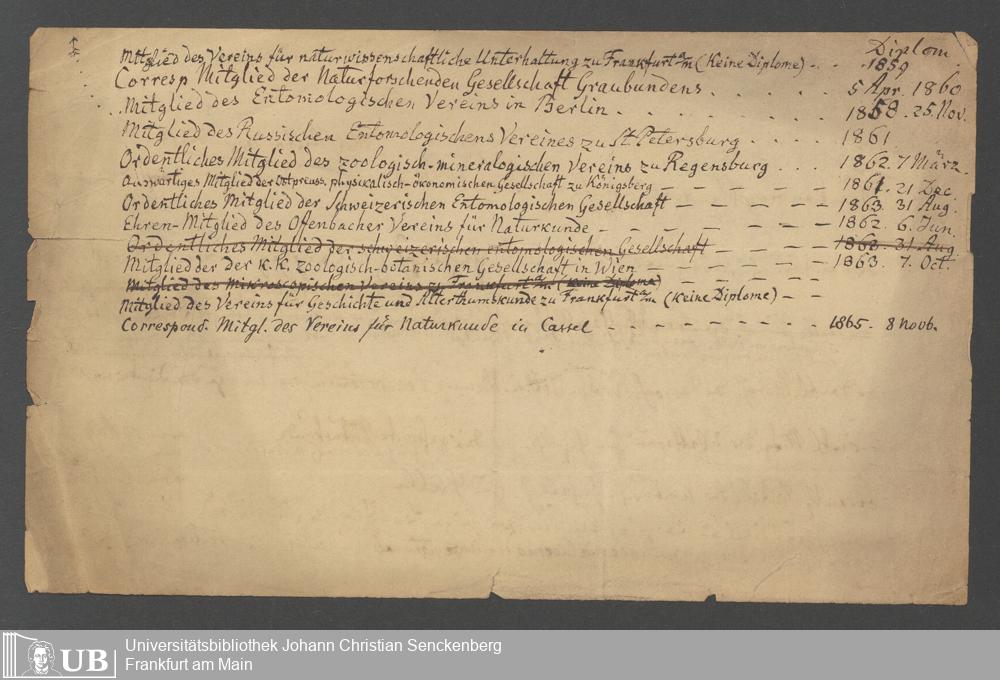 Diplom
Mitglied des Vereins für naturwissenschaftliche Unterhaltung zu Frankfurt a/m (Keine Diplome) - . . 1859
Corresp. Mitglied der Naturforschenden Gesellschaft Graubundens . . . . . . 5 Apr. 1860
Mitglied des Entomologischen Vereins in Berlin . . . . . . . . 1858. 25. Nov.
Mitglied des Russischen Entomologischens Vereines zu St Petersburg . . . . 1861
Ordentliches Mitglied des zoologisch-mineralogischen Vereins zu Regensburg . . . 1862. 7 März.
Auswärtiges Mitglied der Ostpreuss. physikalisch-ökonomischen Gesellschaft zu Königsberg - - - - - - 1861. 21 Dec.
Ordentliches Mitglied der Schweizerischen Entomologischen Gesellschaft - - - - - - 1863. 31 Aug.
Ehren-Mitglied des Offenbacher Vereins für Naturkunde - - - - - - - 1862. 6. Jun.
Ordentliches Mitglied der schweizerischen entomologischen Gesellschaft - - - - 1863. 31 Aug
Mitglied der der K. K. zoologisch-botanischen Gesellschaft in Wien - - - - - - 1863. 7. Oct.
Mitglied des Mikroscopischen Vereins zu Frankfurt a/m (Keine Diplome) - - - - -
Mitglied des Vereins für Geschichte und Alterthumskunde zu Frankfurt a/m (Keine Diplome) - -
Correspond. Mitgl. des Vereins für Naturkunde in Cassel - - - - - - - - - 1865. 8 Novb.
UB
Universitätsbibliothek Johann Christian Senckenberg
Frankfurt am Main